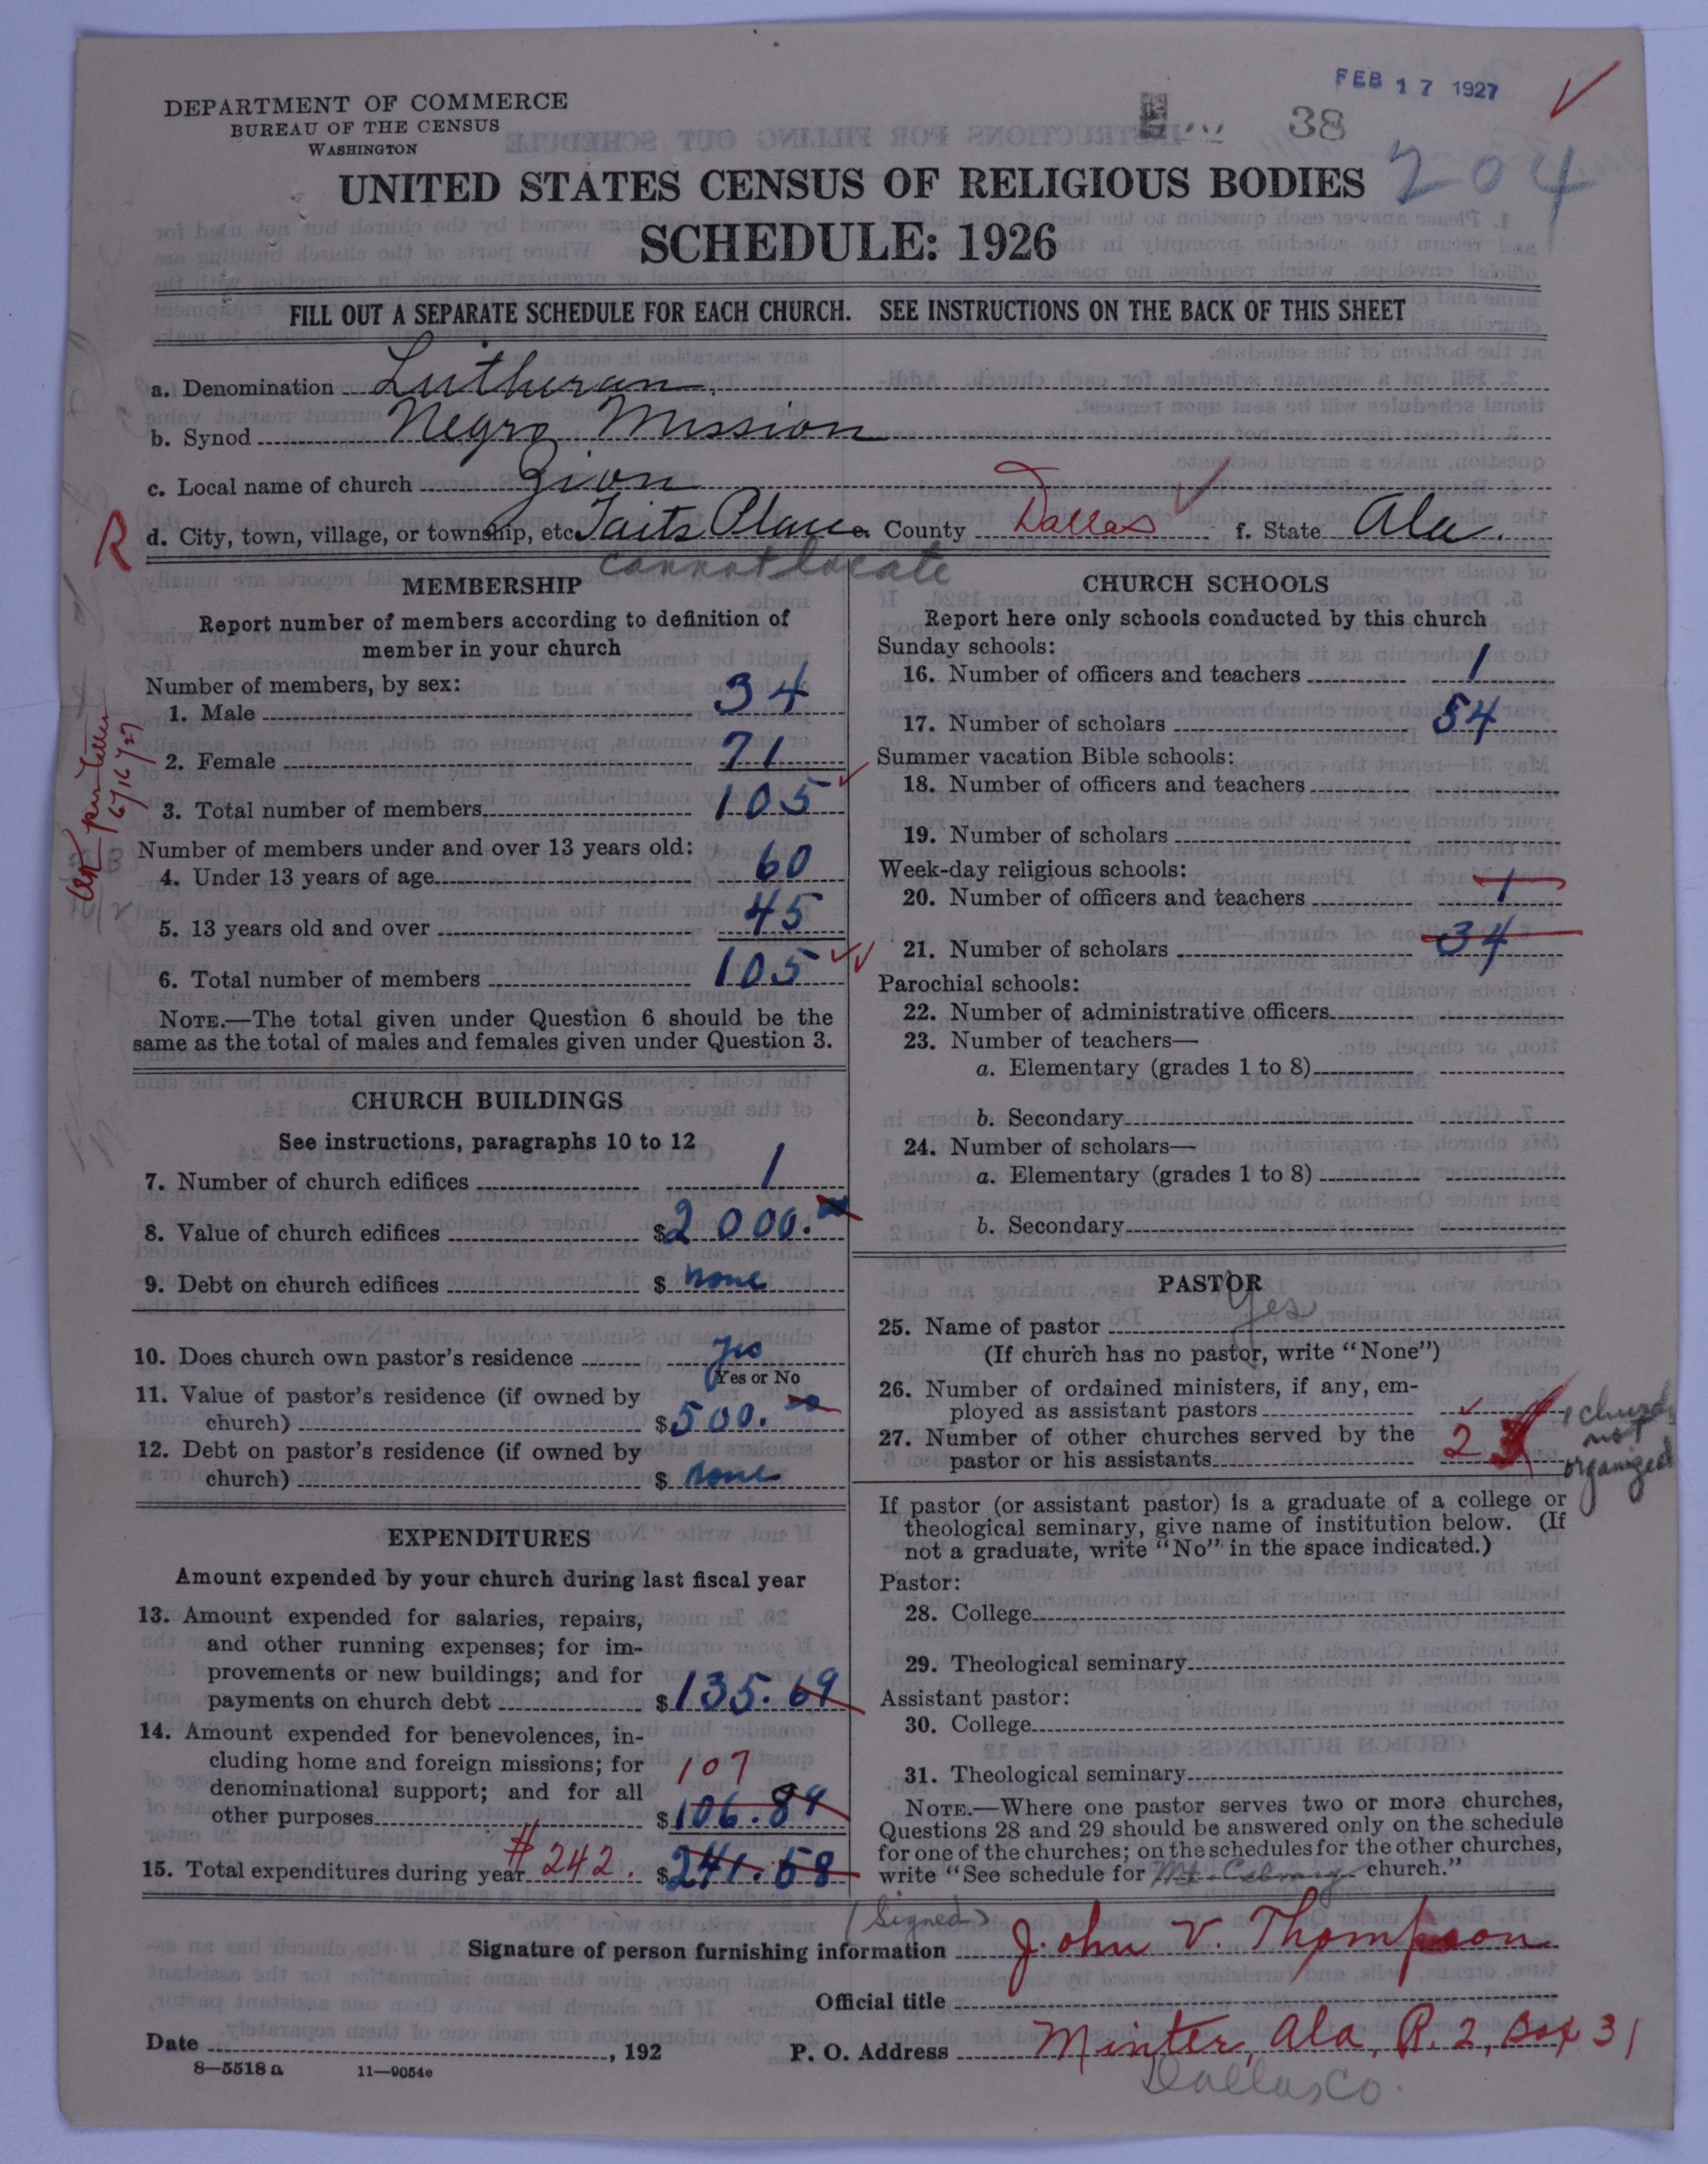 FEB 17 1927
38
DEPARTMENT OF COMMERCE
BUREAU OF THE CENSUS
WASHINGTON
204
UNITED STATES CENSUS OF RELIGIOUS BODIES
SCHEDULE: 1926
FILL OUT A SEPARATE SCHEDULE FOR EACH CHURCH. SEE INSTRUCTIONS ON THE BACK OF THIS SHEET
a. Denomination Lutheran
b. Synod Negro Mission
c. Local name of church Zion
R d. City, town, village, or township, etc. Taits Place e. County Dallas f. State Ala.
cannot locate
MEMBERSHIP
Report number of members according to definition of
member in your church
Number of members, by sex:
1. Male 34
2. Female 71
3. Total number of members 105
Number of members under and over 13 years old:
4. Under 13 years of age 60
5. 13 years old and over 45
6. Total number of members 105
NOTE.—The total given under Question 6 should be the
same as the total of males and females given under Question 3.
per letter
6/16/27
CHURCH BUILDINGS
See instructions, paragraphs 10 to 12
7. Number of church edifices 1
8. Value of church edifices $2000.00
9. Debt on church edifices $ none
10. Does church own pastor's residence yes
Yes or No
11. Value of pastor's residence (if owned by
church) $500.00
12. Debt on pastor's residence (if owned by
church) $ none
EXPENDITURES
Amount expended by your church during last fiscal year
13. Amount expended for salaries, repairs,
and other running expenses; for im-
provements or new buildings; and for
payments on church debt $135.69
14. Amount expended for benevolences, in-
cluding home and foreign missions; for
denominational support; and for all 107
other purposes $106.89
15. Total expenditures during year #242 $241.58
CHURCH SCHOOLS
Report here only schools conducted by this church
Sunday schools:
16. Number of officers and teachers 1
17. Number of scholars 54
Summer vacation Bible schools:
18. Number of officers and teachers
19. Number of scholars
Week-day religious schools:
20. Number of officers and teachers 1
21. Number of scholars 34
Parochial schools:
22. Number of administrative officers
23. Number of teachers—
a. Elementary (grades 1 to 8)
b. Secondary
24. Number of scholars—
a. Elementary (grades 1 to 8)
b. Secondary
PASTOR
25. Name of pastor Yes
(If church has no pastor, write "None")
26. Number of ordained ministers, if any, em-
ployed as assistant pastors
27. Number of other churches served by the
pastor or his assistants 2
1 church
not
organized
If pastor (or assistant pastor) is a graduate of a college or
theological seminary, give name of institution below. (If
not a graduate, write "No" in the space indicated.)
Pastor:
28. College
29. Theological seminary
Assistant pastor:
30. College
31. Theological seminary
NOTE.—Where one pastor serves two or more churches,
Questions 28 and 29 should be answered only on the schedule
for one of the churches; on the schedules for the other churches,
write "See schedule for Mt. Calvary church."
(Signed)
Signature of person furnishing information John V. Thompson
Official title
Date , 192 P. O. Address Minter, Ala, R. 2, Box 31
Dallas Co.
8—5518 a 11—9054e